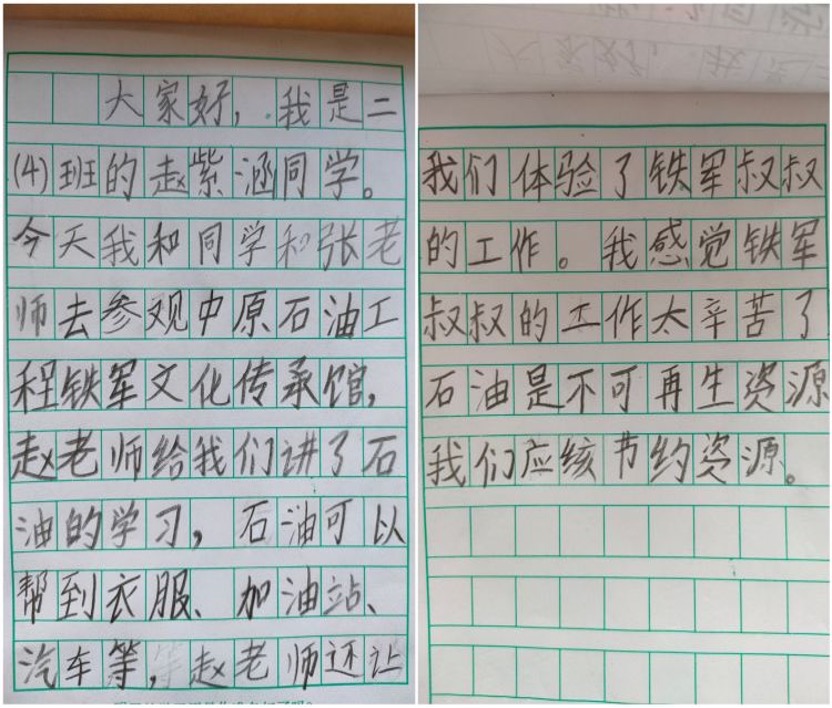 大家好，我是二
(4)班的赵紫涵同学。
今天我和同学和张老
师去参观中原石油工
程铁军文化传承馆，
赵老师给我们讲了石
油的学习，石油可以
帮到衣服、加油站、
汽车等，赵老师还让
我们体验了铁军叔叔
的工作。我感觉铁军
叔叔的工作太辛苦了
石油是不可再生资源
我们应该节约资源。